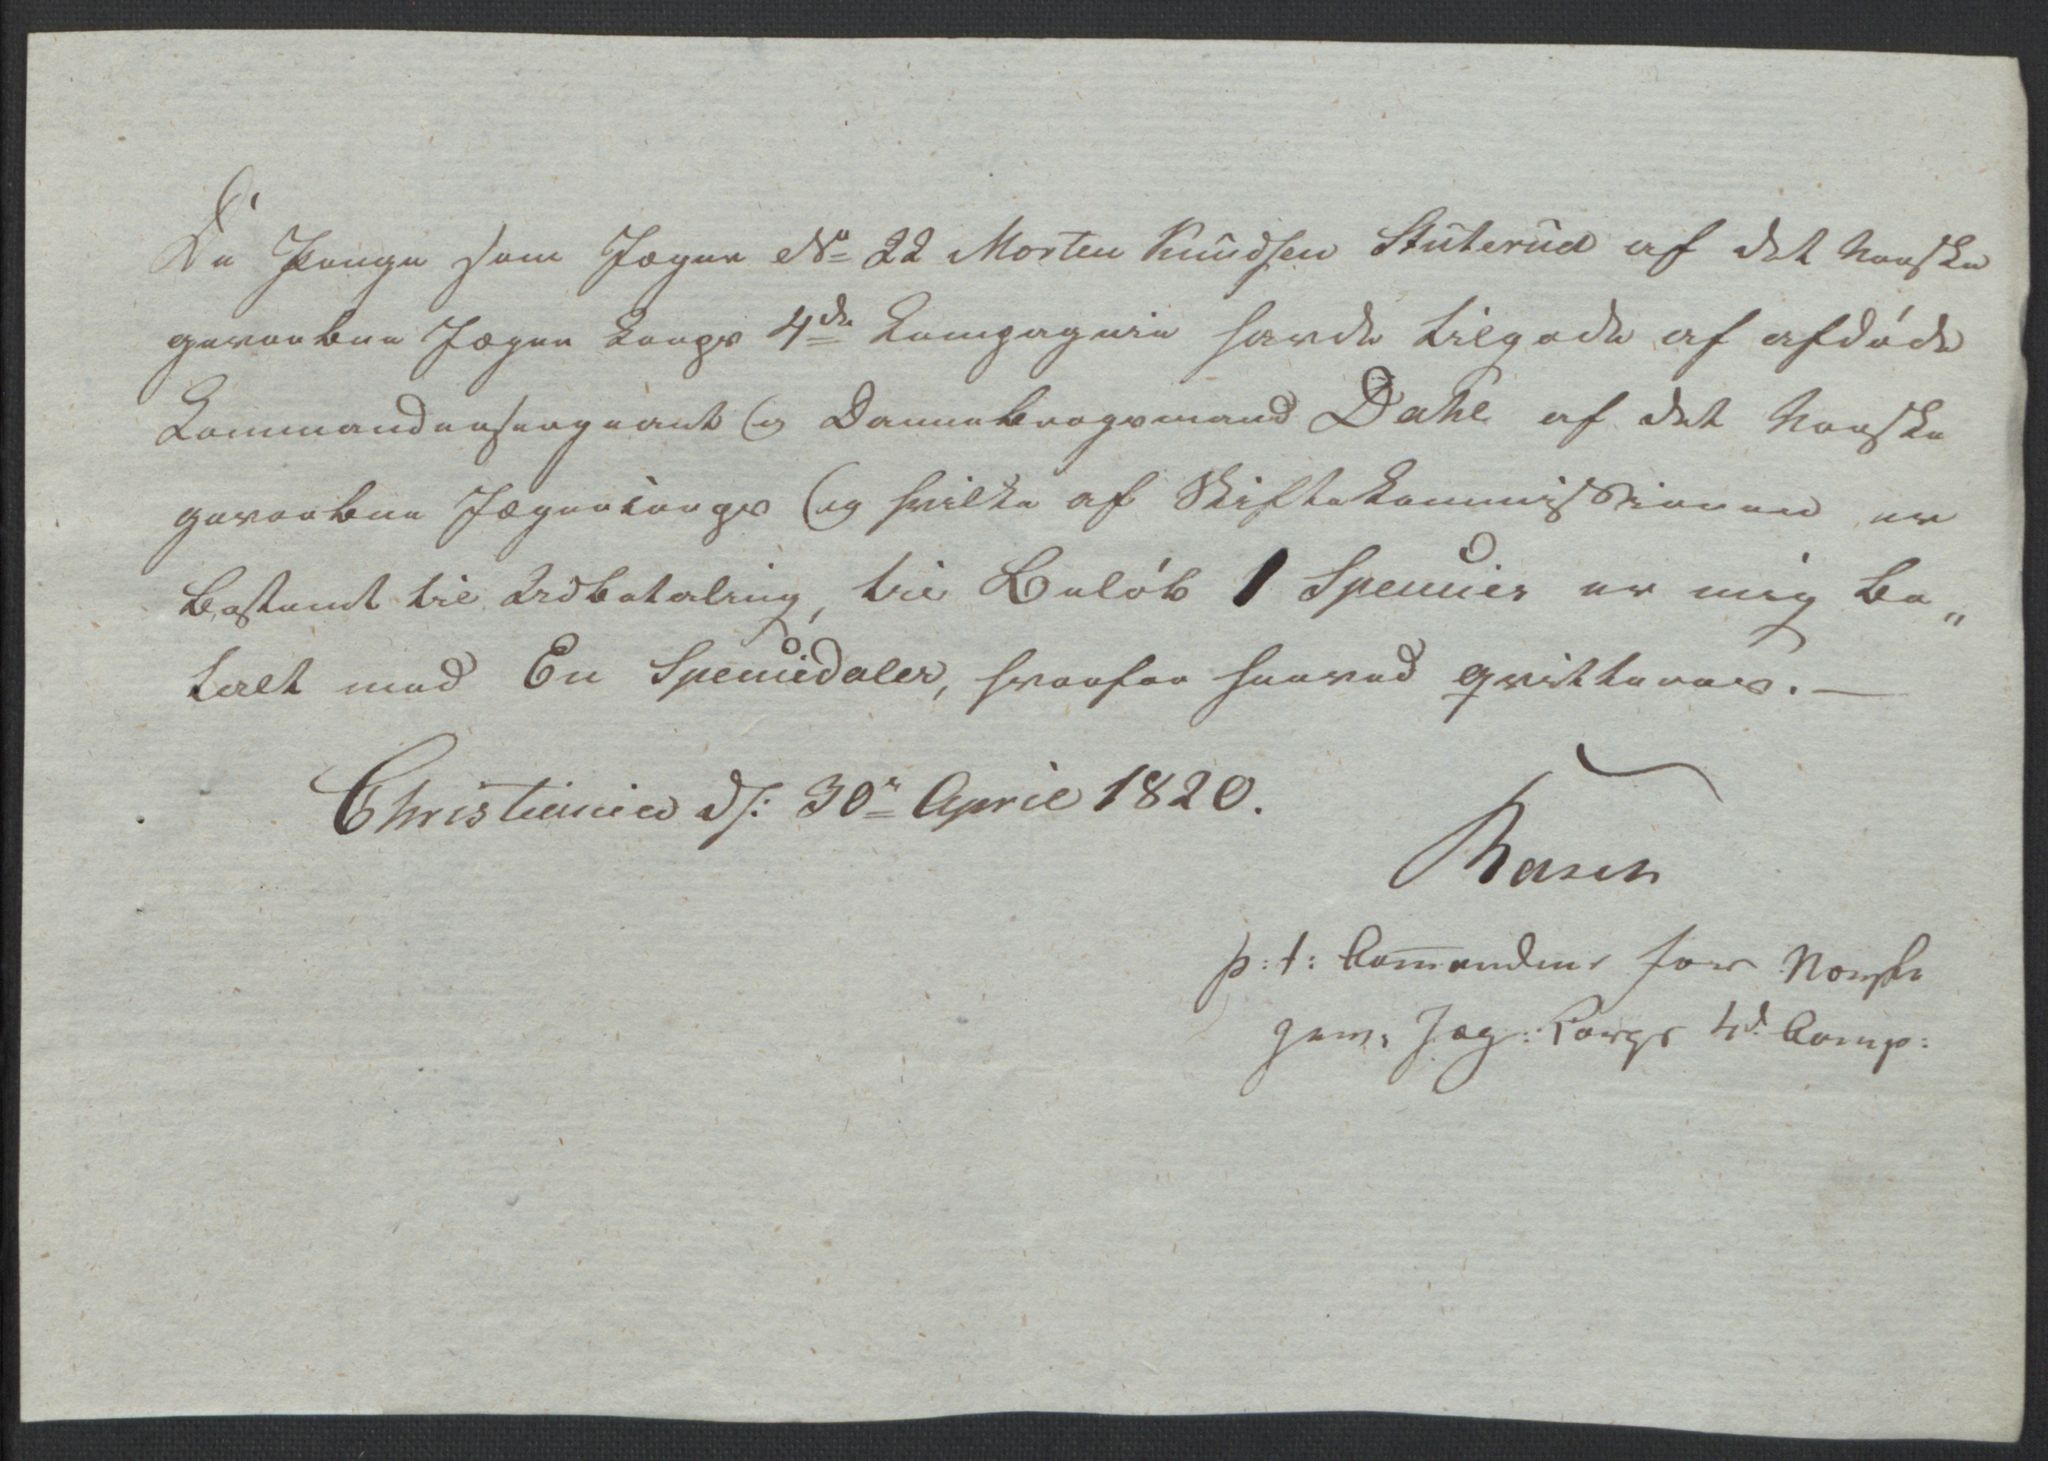 De Penge som Jæger No 22 Morten Knudsen Stuterud af det Norske
gevorbne Jæger Corps 4de Compagnie havde tilgode af afdøde
Commandersergeant og Dannebrogsmand Dahl af det Norske
gevorbne Jægercorps og hvilke af Skiftecommissionen er
bestemt til Udbetaling, til Beløb 1 Specier er mig be„
talt med En Speciedaler, hvorfor herved qvitteres. —
Christiania d: 30te April 1820.
p: t: Commandeur for Norske
gew: Jæg: Corps 4d: Comp: